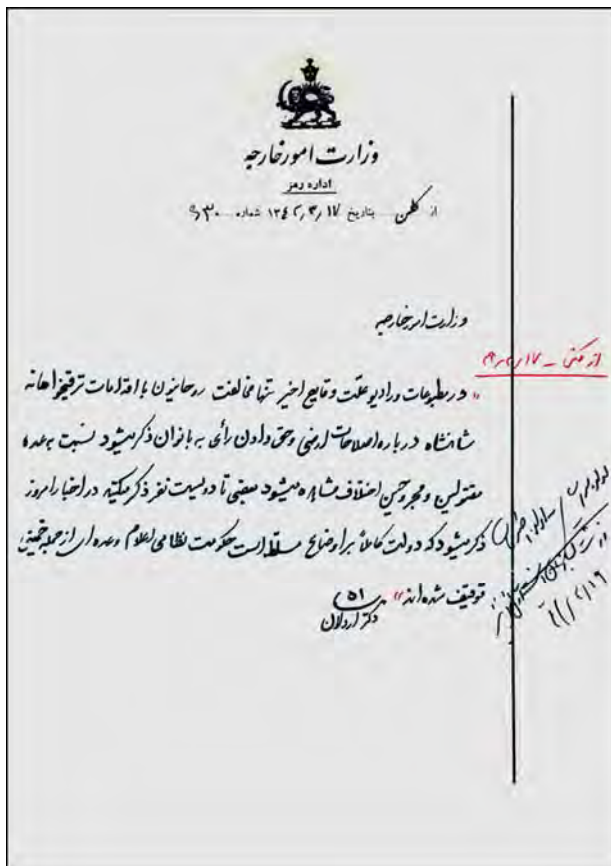 وزارت امور خارجه
اداره رمز
از کلن بتاریخ ۱۳۴۲٫۳٫۱۷ شماره ۹۳۰
وزارت امور خارجه
۱۷
« در مطبوعات و رادیو علت وقایع اخیر تنها مخالفت روحانیون با اقدامات ترقیخواهانه
شاهنشاه درباره اصلاحات ارضی و حق دادن رأی به بانوان ذکر میشود نسبت به عده
مقتولین و مجروحین اختلاف مشاهده میشود بعضی تا دویست نفر ذکر میکنند در اخبار امروز
ذکر میشود که دولت کاملاً بر اوضاع مسلط است حکومت نظامی اعلام و عده ای از جمله خمینی
توقیف شده اند » ۵۱
دکتر اردلان